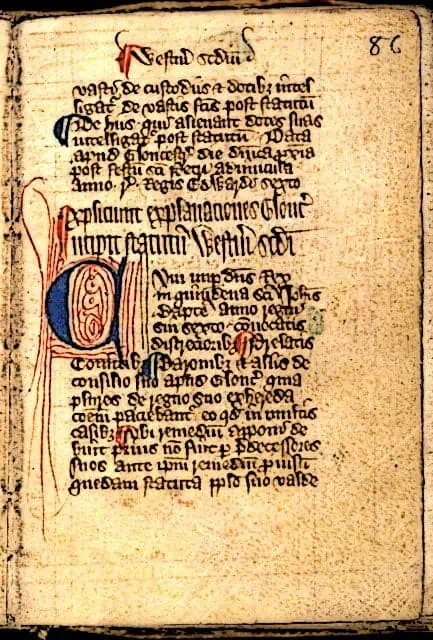 86
Westm̄ scdm
vastis de custodiis & dotibȝ intel
ligat̄ de vastis fcīs post statutū
De hiis qui alienant dotes suas
intelligat̄ post statutū Data
apud Glouc̄ die dn̄ica px̄ia
post festū sc̄i Petri ad vincula
Anno r̄ Regis Edwardi sexto
Expliciunt explanaciones Glouc̄
Incipit statutū Westm̄ scdi
Cum nup̄ dn̄s Rex
in quindena sc̄i Joh̄is
Bapt̄e anno regni
sui sexto convocatis
discrecioribȝ p̄latis
Comitibȝ Baronibȝ & aliis de
consilio suo apud Glouc̄ quia
plures de regno suo exhereda
cōem paciebant̄ eo qd̄ in multis
casibȝ ubi remediū apponi de
buit prius nō fuit p̄ p̄decessores
suos ante ip̄m remediū p̄uisū
quedam statuta pplo suo valde